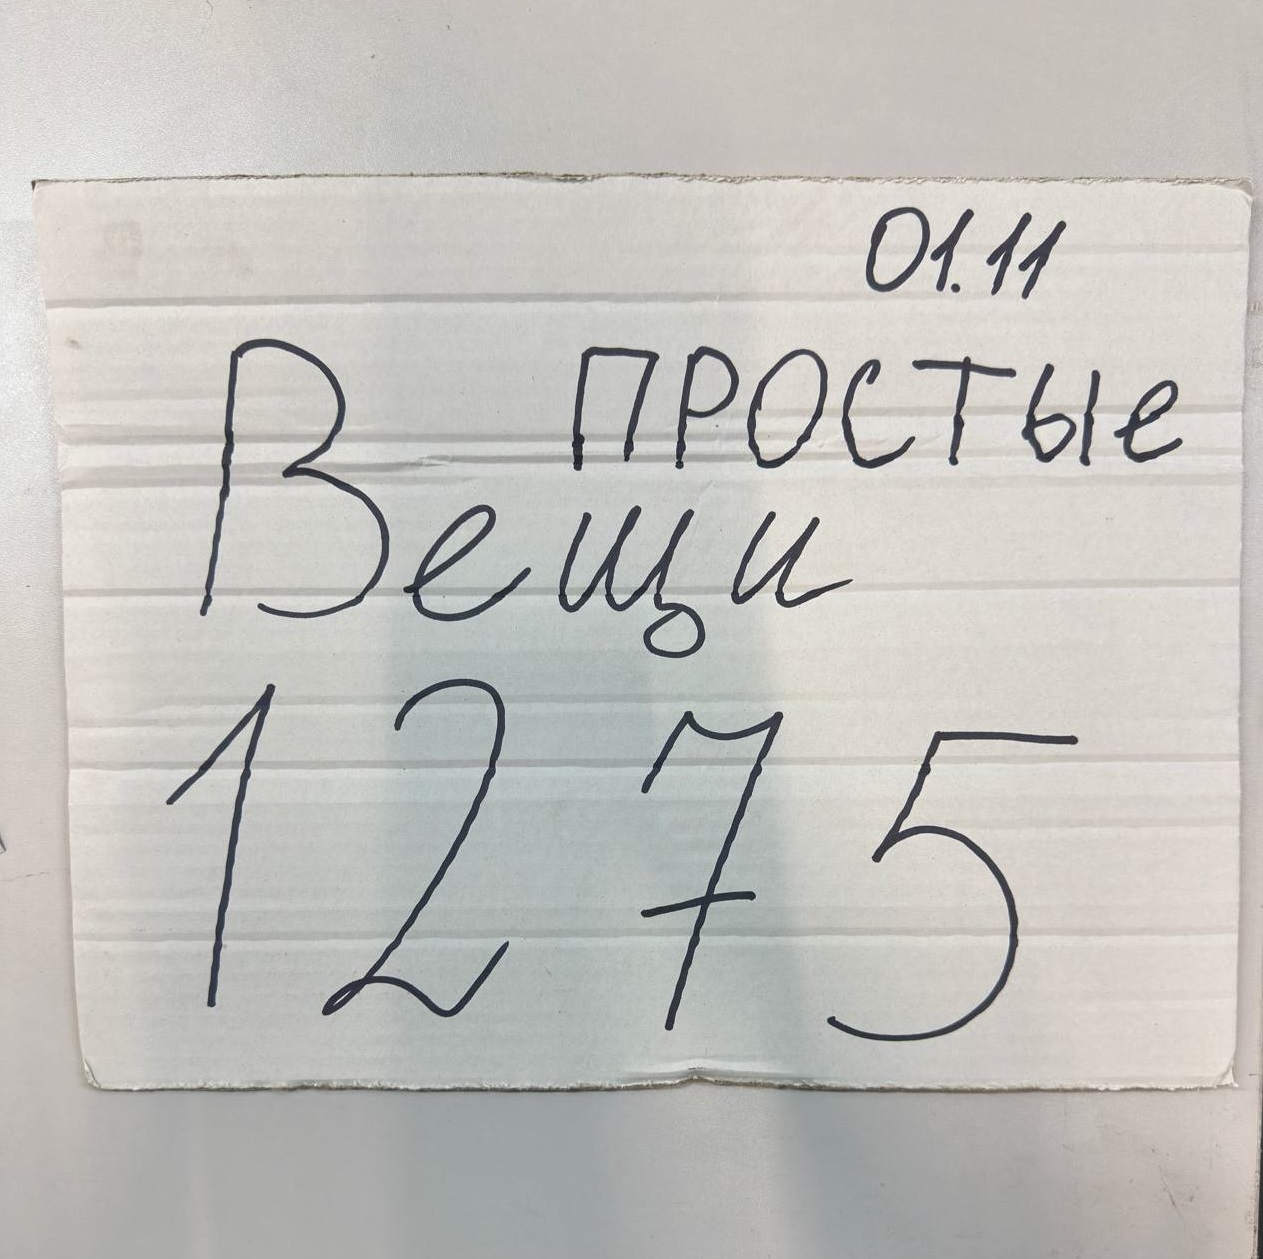 01.11
ПРОСТЫе
Вещи
1275